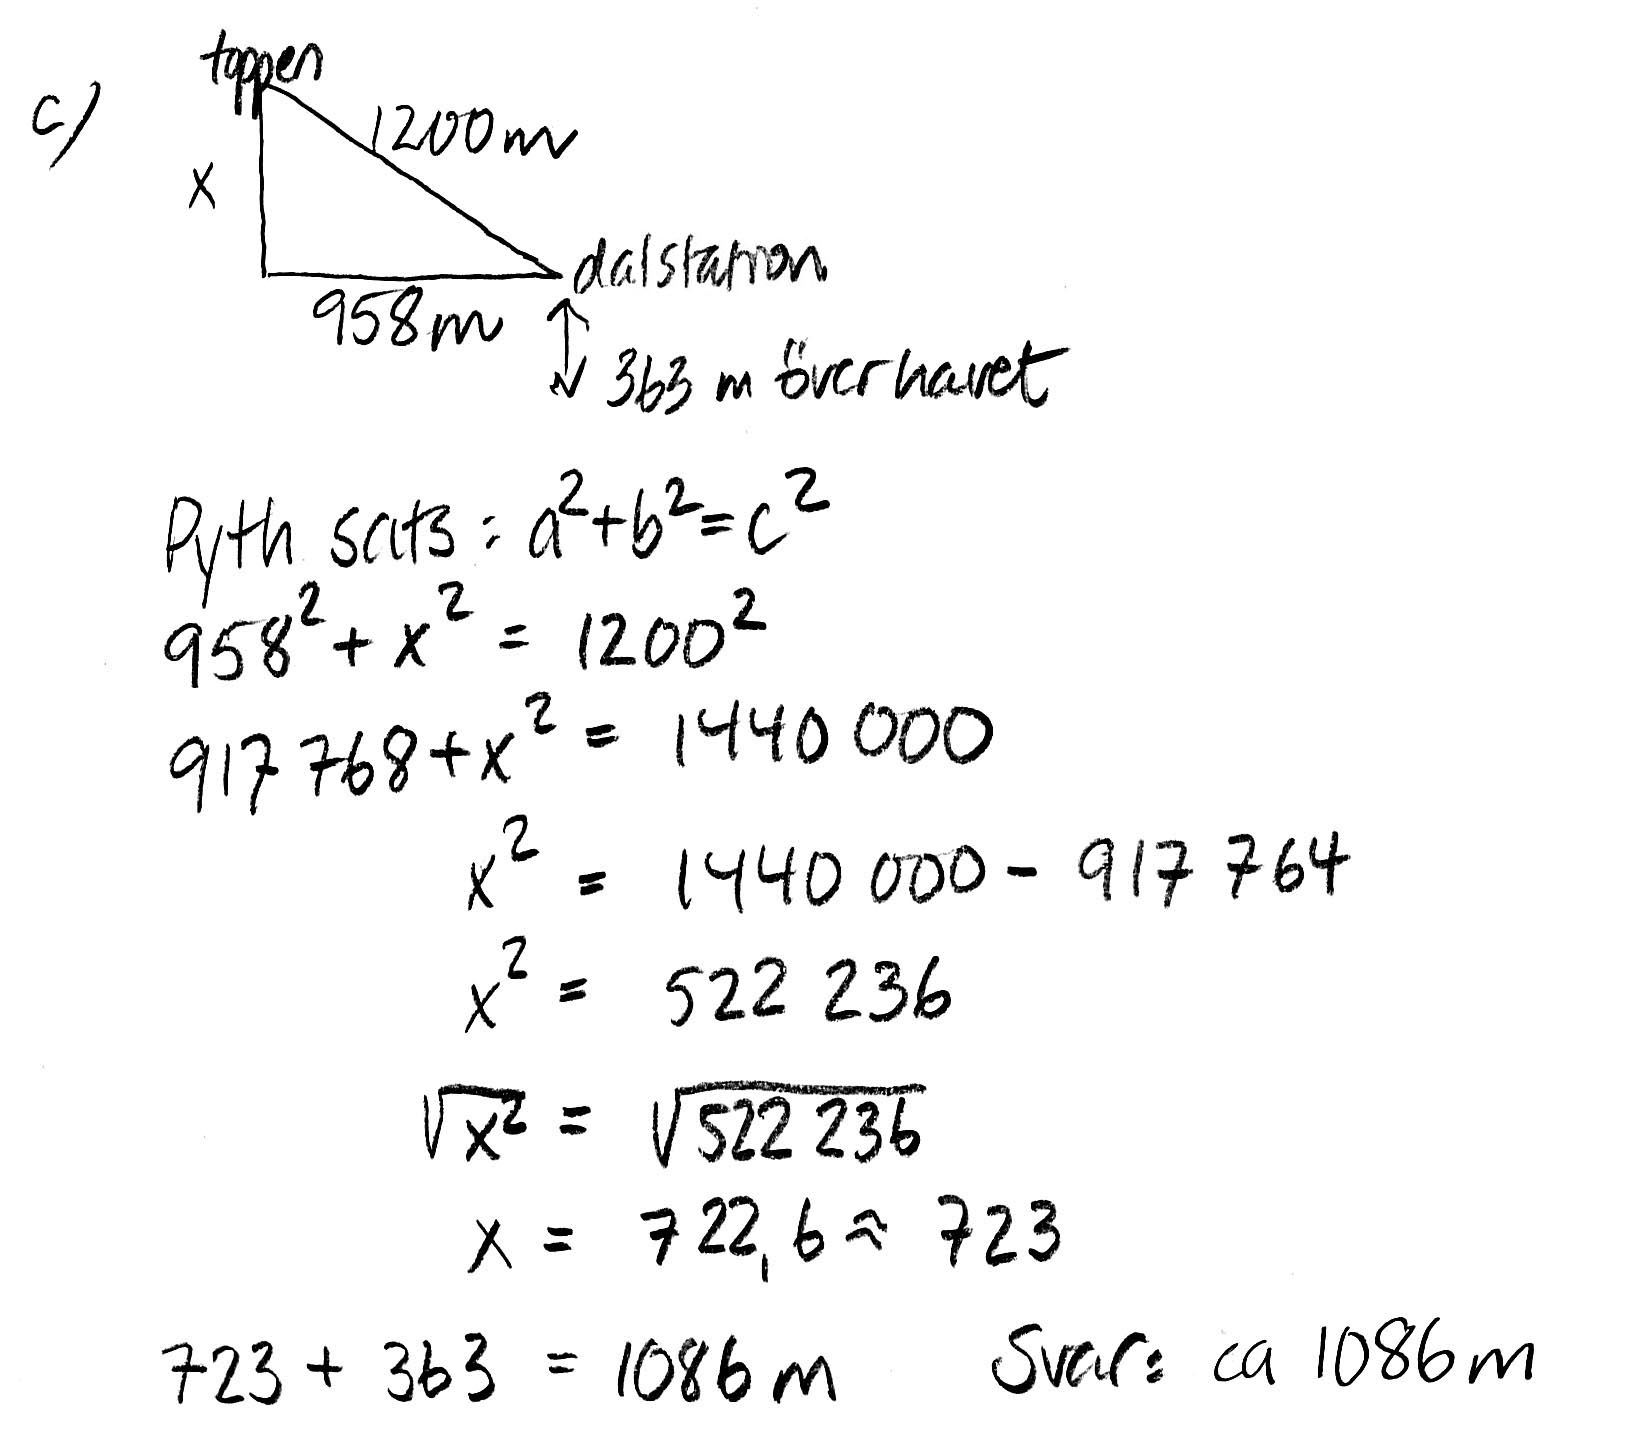 c)
toppen
1200 m
x
dalstation
958 m
363 m över havet
Pyth sats: a²+b²=c²
958² + x² = 1200²
917 768 + x² = 1440 000
x² = 1440 000 - 917 764
x² = 522 236
√x² = √522 236
x = 722,6 ≈ 723
723 + 363 = 1086 m
Svar: ca 1086 m